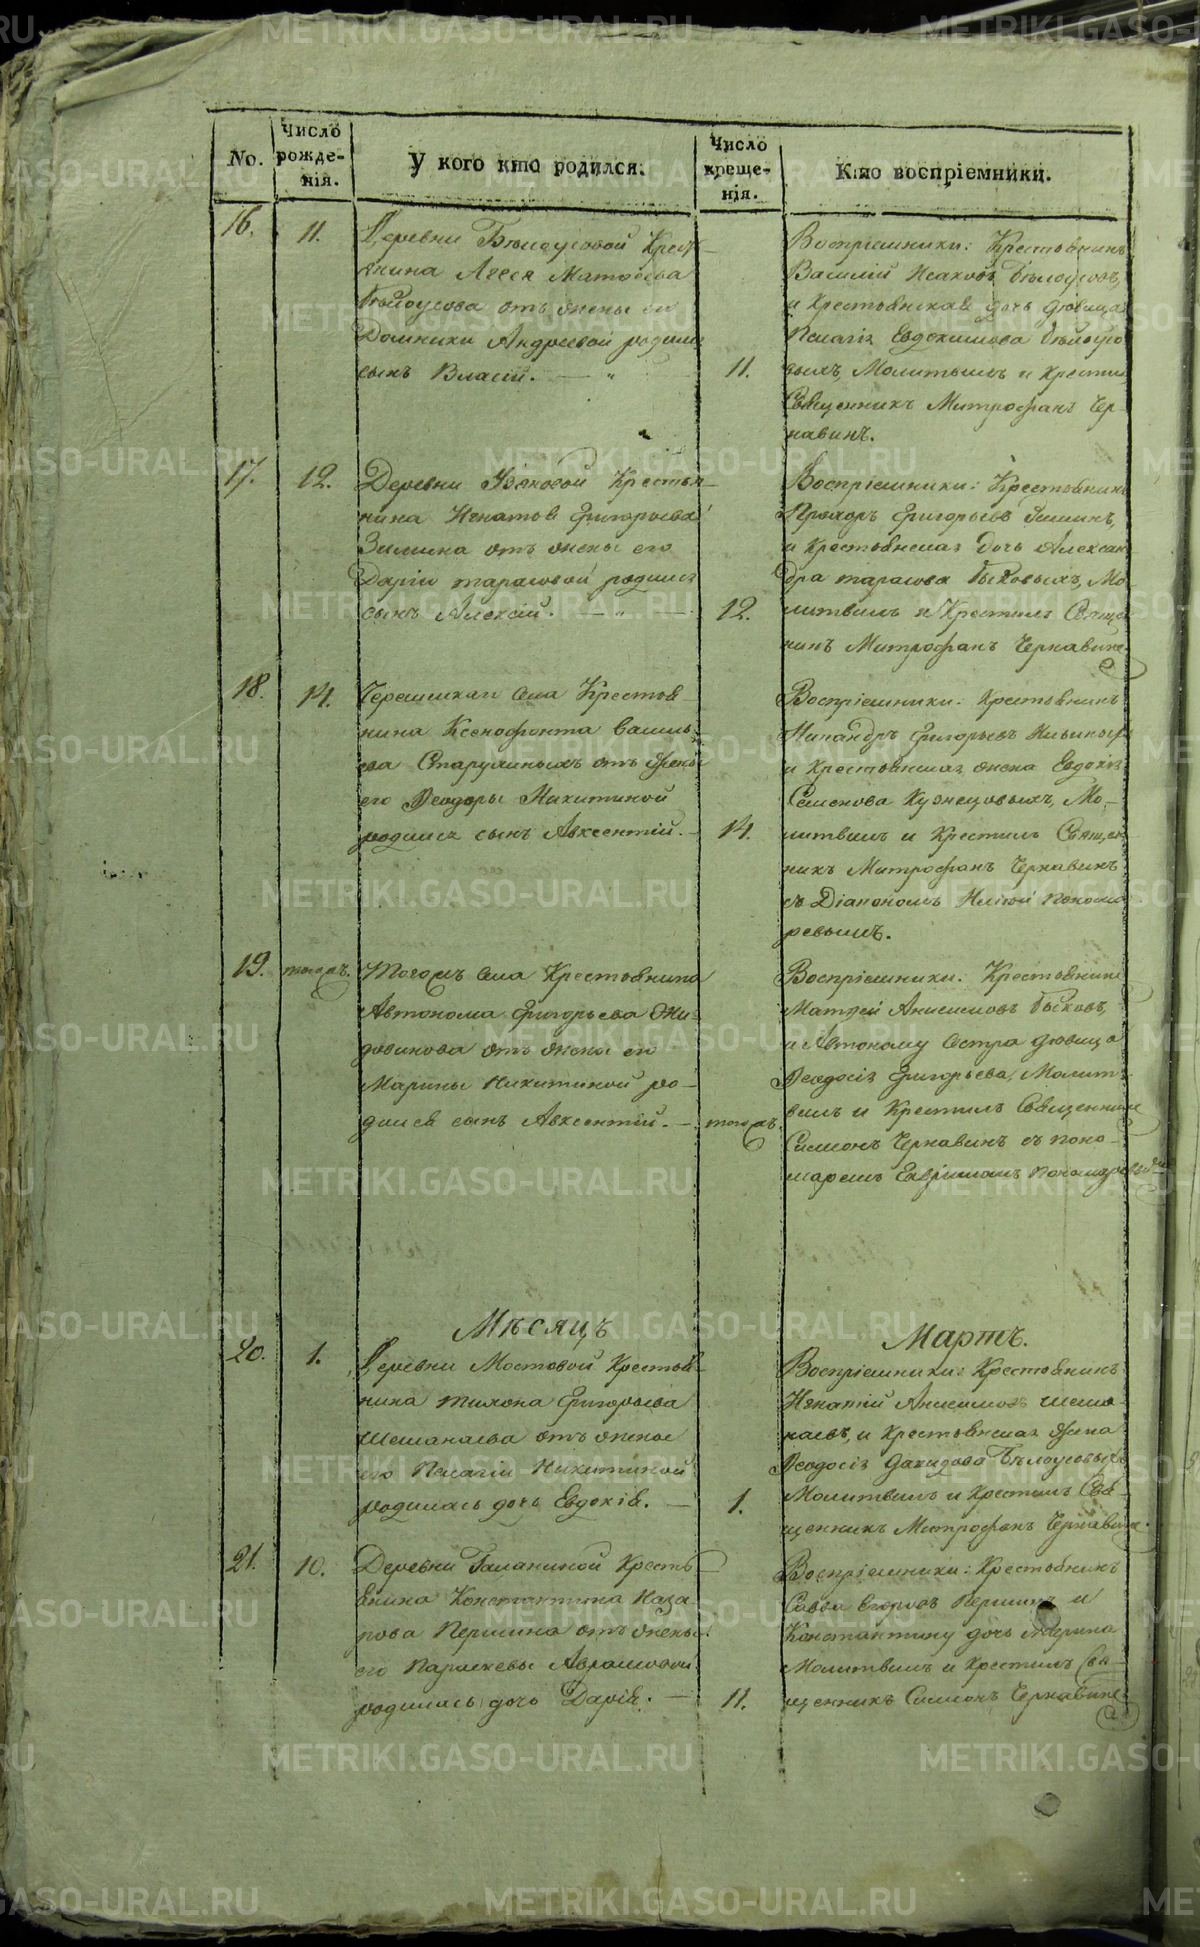 No.
Число рожде-нія.
У кого кто родился.
Число креще-нія.
Кто воспріемники.
16.
11.
Деревни Бѣлоусовой Кресть-
янина Аггея Матѳѣева
Бѣлоусова отъ жены его
Домники Андреевой родился
сынъ Власій. — „ —
11.
Воспріемники: Крестьянинъ
Василій Исаковъ Бѣлоусовъ,
и Крестьянская дочь дѣвица
Пелагія Евдокимова Бѣлоусо
выхъ, Молитвилъ и Крестилъ
Священникъ Митрофанъ Чер-
навинъ.
17.
12.
Деревни Крестья-
нина Игнатія Григорьева
Зимина отъ жены его
Даріи Тарасовой родился
сынъ Алексій. — „ —
12.
Воспріемники: Крестьянинъ
Прохоръ Григорьевъ Зиминъ,
и Крестьянская дочь Алексан-
дра Тарасова Быковыхъ, Мо-
литвилъ и Крестилъ Священ
никъ Митрофанъ Чернавинъ.
18.
14.
Черемисскаго села Крестья-
нина Ксенофонта Василь-
ева отъ жены
его Ѳеодоры Никитиной
родился сынъ Авксентій. —
14.
Воспріемники: Крестьянинъ
Никандръ Григорьевъ
и Крестьянская жена Евдокія
Семенова Кузнецовыхъ, Мо-
литвилъ и Крестилъ Священ
никъ Митрофанъ Чернавинъ
съ Діакономъ Иліей Понома
ревымъ.
19.
тогожъ.
Тогожъ села Крестьянина
Автонома Григорьева Жи-
довинова отъ жены его
Марины Никитиной ро-
дился сынъ Авксентій. —
тогожъ.
Воспріемники: Крестьянинъ
Матѳей Анисимовъ Быковъ,
и Автоному сестра дѣвица
Ѳеодосія Григорьева, Молит-
вилъ и Крестилъ Священникъ
Симеонъ Чернавинъ съ поно-
маремъ Гавріиломъ Пономаревымъ
Мѣсяцъ
Мартъ.
20.
1.
Деревни Мостовой Крестья-
нина Тихона Григорьева
Шеманаева отъ жены
его Пелагіи Никитиной
родилась дочь Евдокія. —
1.
Воспріемники: Крестьянинъ
Игнатій Анисимовъ Шема-
наевъ, и Крестьянская жена
Ѳеодосія Давидова Бѣлоусовыхъ
Молитвилъ и Крестилъ Свя-
щенникъ Митрофанъ Чернавинъ.
21.
10.
Деревни Галаниной Кресть-
янина Константина Наза
рова Першина отъ жены
его Параскевы Аврамовой
родилась дочь Дарія. —
11.
Воспріемники: Крестьянинъ
Савва Егоровъ Першинъ и
Константину дочь
Молитвилъ и Крестилъ Свя-
щенникъ Симеонъ Чернавинъ.
METRIKI.GASO-URAL.RU